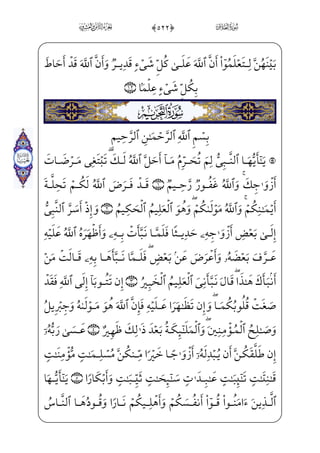 ﴿٥٢٢﴾
بَيْنَهُنَّ لِتَعْلَمُوٓا۟ أَنَّ ٱللَّهَ عَلَىٰ كُلِّ شَىْءٍ قَدِيرٌ وَأَنَّ ٱللَّهَ قَدْ أَحَاطَ
بِكُلِّ شَىْءٍ عِلْمًۢا ۝١٢
سُورَةُ التَّحْرِيمِ
بِسْمِ ٱللَّهِ ٱلرَّحْمَٰنِ ٱلرَّحِيمِ
۞ يَٰٓأَيُّهَا ٱلنَّبِىُّ لِمَ تُحَرِّمُ مَآ أَحَلَّ ٱللَّهُ لَكَ ۖ تَبْتَغِى مَرْضَاتَ
أَزْوَٰجِكَ ۚ وَٱللَّهُ غَفُورٌ رَّحِيمٌ ۝١ قَدْ فَرَضَ ٱللَّهُ لَكُمْ تَحِلَّةَ
أَيْمَٰنِكُمْ ۚ وَٱللَّهُ مَوْلَىٰكُمْ ۖ وَهُوَ ٱلْعَلِيمُ ٱلْحَكِيمُ ۝٢ وَإِذْ أَسَرَّ ٱلنَّبِىُّ
إِلَىٰ بَعْضِ أَزْوَٰجِهِۦ حَدِيثًا فَلَمَّا نَبَّأَتْ بِهِۦ وَأَظْهَرَهُ ٱللَّهُ عَلَيْهِ
عَرَّفَ بَعْضَهُۥ وَأَعْرَضَ عَنۢ بَعْضٍ ۖ فَلَمَّا نَبَّأَهَا بِهِۦ قَالَتْ مَنْ
أَنۢبَأَكَ هَٰذَا ۖ قَالَ نَبَّأَنِىَ ٱلْعَلِيمُ ٱلْخَبِيرُ ۝٣ إِن تَتُوبَآ إِلَى ٱللَّهِ فَقَدْ
صَغَتْ قُلُوبُكُمَا ۖ وَإِن تَظَٰهَرَا عَلَيْهِ فَإِنَّ ٱللَّهَ هُوَ مَوْلَىٰهُ وَجِبْرِيلُ
وَصَٰلِحُ ٱلْمُؤْمِنِينَ ۖ وَٱلْمَلَٰٓئِكَةُ بَعْدَ ذَٰلِكَ ظَهِيرٌ ۝٤ عَسَىٰ رَبُّهُۥٓ
إِن طَلَّقَكُنَّ أَن يُبْدِلَهُۥٓ أَزْوَٰجًا خَيْرًا مِّنكُنَّ مُسْلِمَٰتٍ مُّؤْمِنَٰتٍ
قَٰنِتَٰتٍ تَٰٓئِبَٰتٍ عَٰبِدَٰتٍ سَٰٓئِحَٰتٍ ثَيِّبَٰتٍ وَأَبْكَارًا ۝٥ يَٰٓأَيُّهَا
ٱلَّذِينَ ءَامَنُوا۟ قُوٓا۟ أَنفُسَكُمْ وَأَهْلِيكُمْ نَارًا وَقُودُهَا ٱلنَّاسُ